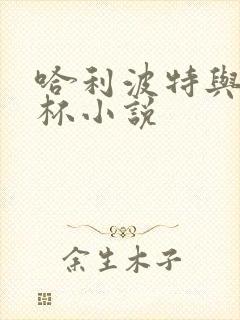 哈利波特與
杯小說
余生木子